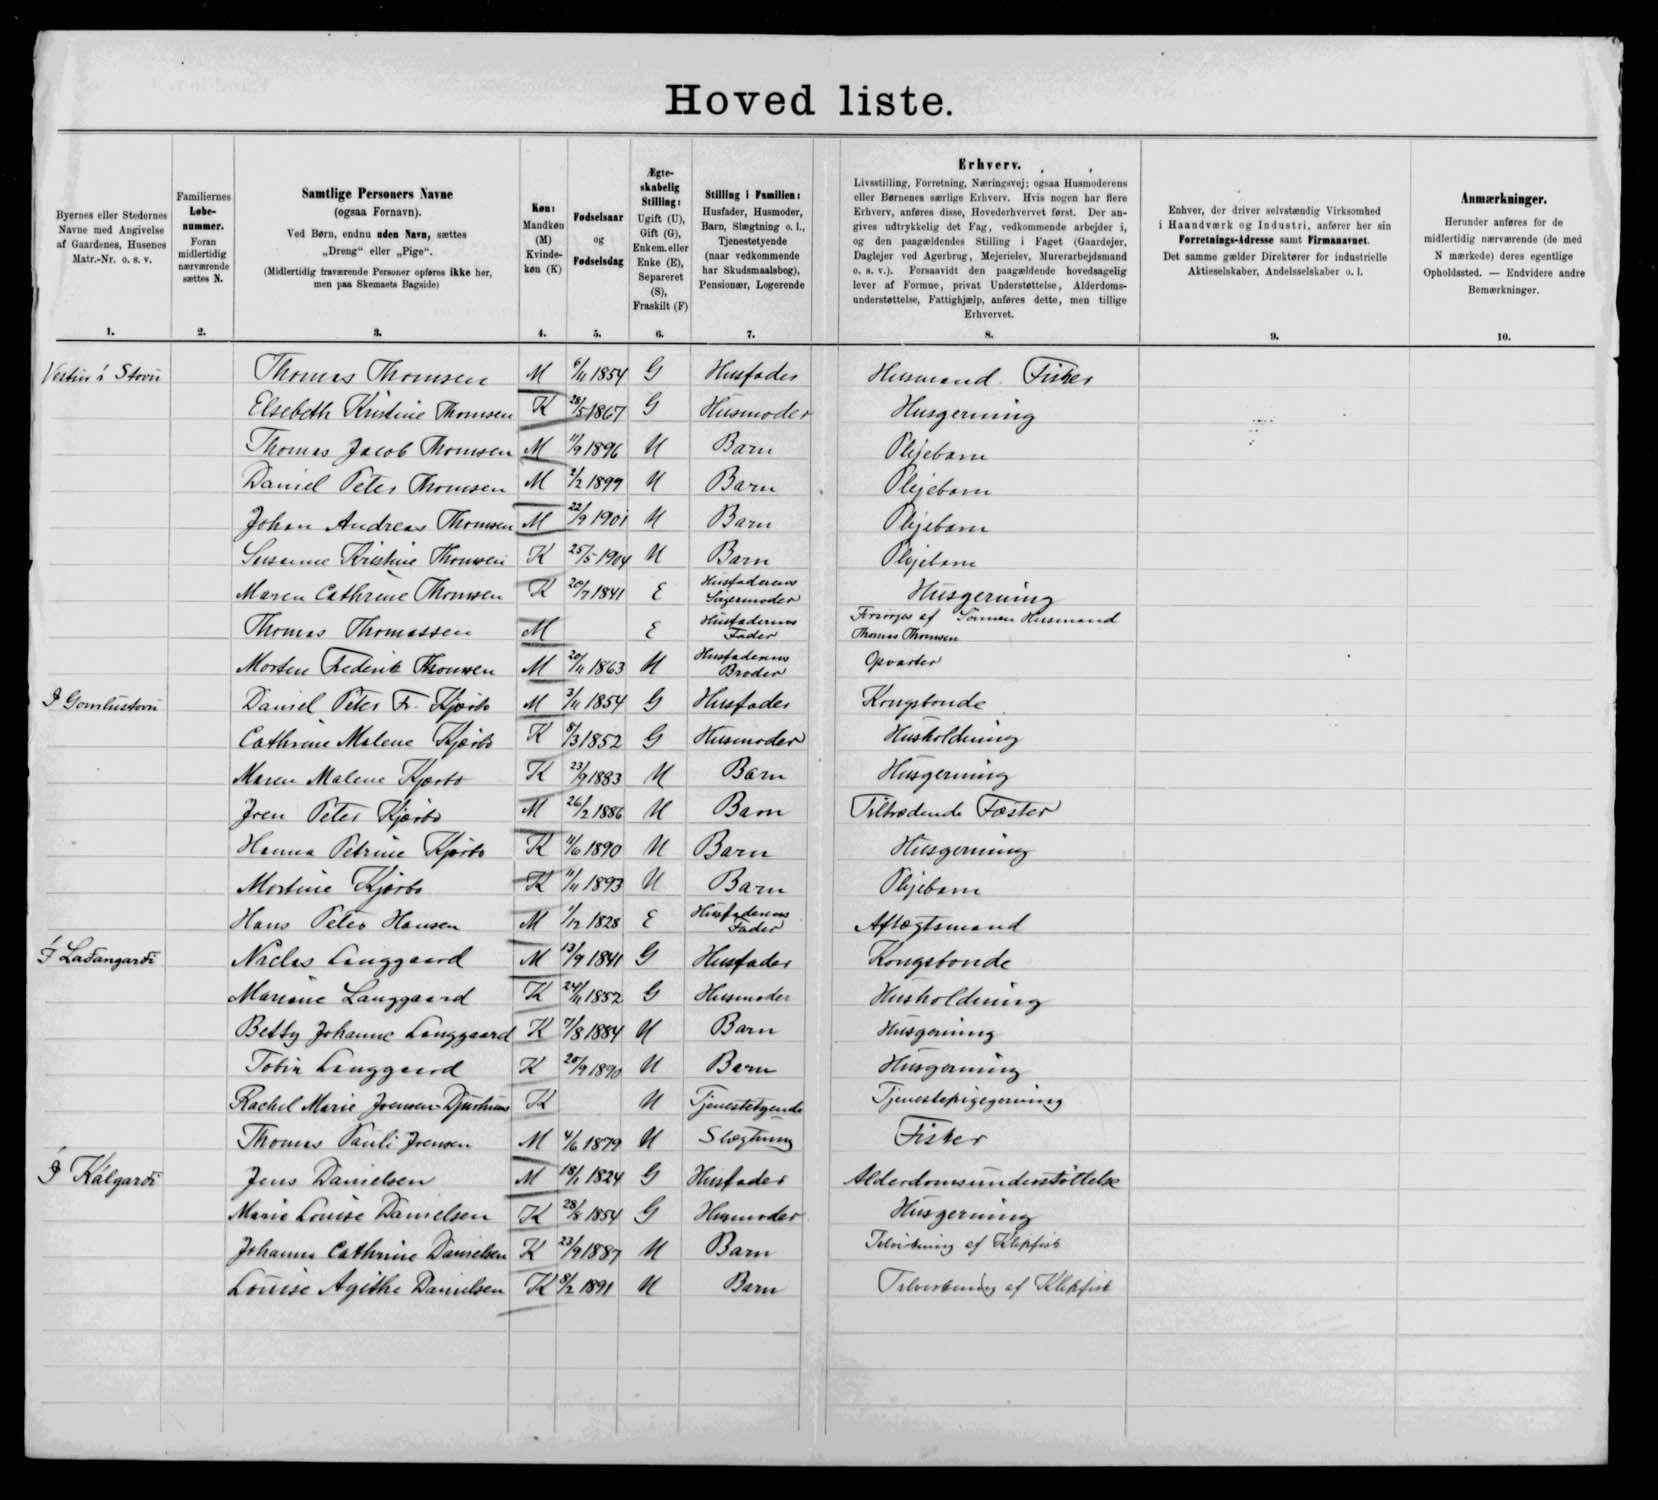 Hoved liste.
Byernes eller Stedernes Navne med Angivelse af Gaardenes, Husenes Matr.-Nr. o. s. v.
Familiernes Løbenummer. Foran midlertidig nærværende sættes N.
Samtlige Personers Navne (ogsaa Fornavn). Ved Børn, endnu uden Navn, sættes „Dreng“ eller „Pige“. (Midlertidig fraværende Personer opføres ikke her, men paa Skemaets Bagside)
Køn: Mandkøn (M) Kvindekøn (K)
Fødselsaar og Fødselsdag
Ægteskabelig Stilling: Ugift (U), Gift (G), Enkem. eller Enke (E), Separeret (S), Fraskilt (F)
Stilling i Familien: Husfader, Husmoder, Barn, Slægtning o. l., Tjenestetyende (naar vedkommende har Skudsmaalsbog), Pensionær, Logerende
Erhverv. Livsstilling, Forretning, Næringsvej; ogsaa Husmoderens eller Børnenes særlige Erhverv. Hvis nogen har flere Erhverv, anføres disse, Hovederhvervet først. Der angives udtrykkelig det Fag, vedkommende arbejder i, og den paagældendes Stilling i Faget (Gaardejer, Daglejer ved Agerbrug, Mejerielev, Murerarbejdsmand o. s. v.). Forsaavidt den paagældende hovedsagelig lever af Formue, privat Understøttelse, Alderdomsunderstøttelse, Fattighjælp, anføres dette, men tillige Erhvervet.
Enhver, der driver selvstændig Virksomhed i Haandværk og Industri, anfører her sin Forretnings-Adresse samt Firmanavnet. Det samme gælder Direktører for industrielle Aktieselskaber, Andelsselskaber o. l.
Anmærkninger. Herunder anføres for de midlertidig nærværende (de med N mærkede) deres egentlige Opholdssted. — Endvidere andre Bemærkninger.
1. 2. 3. 4. 5. 6. 7. 8. 9. 10.
Vestur í Stovu Thomas Thomsen M 6/11 1854 G Husfader Husmand Fisker
Elsebeth Kristine Thomsen K 28/5 1867 G Husmoder Husgerning
Thomas Jacob Thomsen M 11/9 1896 U Barn Plejebarn
Daniel Peter Thomsen M 2/2 1899 U Barn Plejebarn
Johan Andreas Thomsen M 22/9 1901 U Barn Plejebarn
Susanne Kristine Thomsen K 25/5 1904 U Barn Plejebarn
Maren Cathrine Thomsen K 20/7 1841 E Husfaderens Svigermoder Husgerning
Thomas Thomassen M E Husfaderens Fader Forsørges af Sønnen Husmand Thomas Thomsen
Morten Frederik Thomsen M 20/11 1863 U Husfaderens Broder Opvarter
I Gomlustovu Daniel Peter Fr. Kjærbo M 3/11 1854 G Husfader Kongsbonde
Cathrine Malene Kjærbo K 8/3 1852 G Husmoder Husholdning
Maren Malene Kjærbo K 23/9 1883 U Barn Husgerning
Joen Peter Kjærbo M 26/2 1886 U Barn Tiltrædende Fæster
Hanna Petrine Kjærbo K 11/6 1890 U Barn Husgerning
Mortine Kjærbo K 11/11 1893 U Barn Plejebarn
Hans Peter Hansen M 1/12 1828 E Husfaderens Fader Aftægtsmand
Í Laðangarði Niclas Langgaard M 13/9 1841 G Husfader Kongsbonde
Mariane Langgaard K 24/11 1852 G Husmoder Husholdning
Betty Johanne Langgaard K 7/8 1884 U Barn Husgerning
Tobia Langgaard K 20/9 1890 U Barn Husgerning
Rachel Marie Joensen Djurhuus K U Tjenestetyende Tjenestepigegerning
Thomas Pauli Joensen M 4/6 1879 U Slægtning Fisker
Í Kálgarði Jens Danielsen M 18/1 1824 G Husfader Alderdomsunderstøttelse
Marie Louise Danielsen K 28/8 1854 G Husmoder Husgerning
Johanna Cathrine Danielsen K 23/9 1887 U Barn Tilvirkning af Klipfisk
Louise Agithe Danielsen K 8/2 1891 U Barn Tilvirkning af Klipfisk